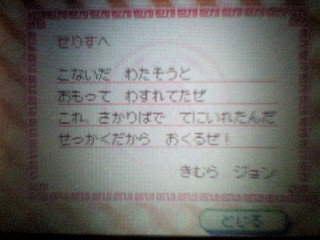 せりすへ
こないだ わたそうと
おもって わすれてたぜ
これ、さかりばで てにいれたんだ
せっかくだから おくるぜ！
きむら ジョン
とじる